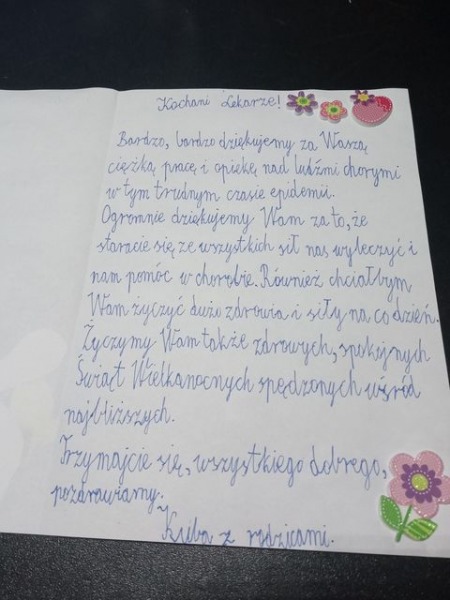 Kochani Lekarze!
Bardzo, bardzo dziękujemy za Waszą
ciężką pracę i opiekę nad ludźmi chorymi
w tym trudnym czasie epidemii.
Ogromnie dziękujemy Wam za to, że
staracie się ze wszystkich sił nas wyleczyć i
nam pomóc w chorobie. Również chciałbym
Wam życzyć dużo zdrowia i siły na co dzień.
Życzymy Wam także zdrowych, spokojnych
Świąt Wielkanocnych spędzonych wśród
najbliższych.
Trzymajcie się, wszystkiego dobrego,
pozdrawiamy.
Kuba z rodzicami.